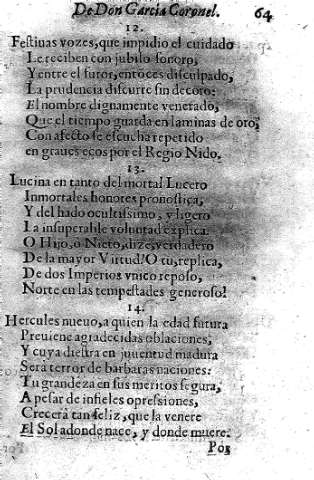 De Don Garcia Coronel. 64
12.
Festiuas vozes, que impidio el cuidado
Le reciben con jubilo sonoro,
Y entre el furor, entoces disculpado,
La prudencia discurre sin decoro:
El nombre dignamente venerado,
Que el tiempo guarda en laminas de oro,
Con afecto se escucha repetido
en graues ecos por el Regio Nido.
13.
Lucina en tanto del mortal Lucero
Inmortales honores pronostica,
Y del hado ocultissimo, y ligero
La insuperable voluntad explica.
O Hijo, ò Nieto, dize, verdadero
De la mayor Virtud! O tu, replica,
De dos Imperios vnico reposo,
Norte en las tempestades generoso!
14.
Hercules nueuo, a quien la edad futura
Preuiene agradecidas oblaciones,
Y cuya diestra en juuentud madura
Serà terror de barbaras naciones:
Tu grandeza en sus meritos segura,
A pesar de infieles opressiones,
Crecerà tan feliz, que la venere
El Sol adonde nace, y donde muere.
Por